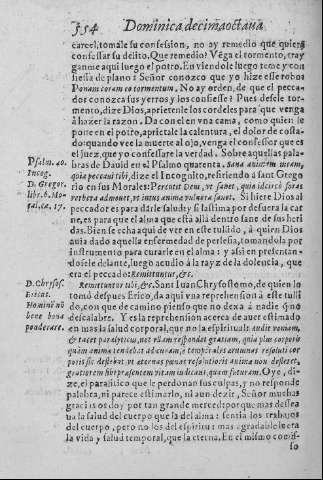 554 Dominica decimaoctaua
carcel, tomale su confession, no ay remedio que quiera
confessar su delito. Que remedio? Vẽga el tormento, tray
ganme aqui luego el potro. En viendole luego teme y con
fiessa de plano: Señor conozco que yo hize esse robo:
Ponam coram eo tormentum. No ay orden, de que el pecca-
dor conozca sus yerros y los confiesse? Pues desele tor-
mento, dize Dios, aprietenle los cordeles para que venga
à hazer la razon. Da con el en vna cama, como quien le
pone en el potro, aprietale la calentura, el dolor de costa-
do: quando vee la muerte al ojo, venga el confessor que es
el juez, que yo confessare la verdad. Sobre aquellas pala-
bras de Dauid en el Psalmo quarenta. Sana animam meam,
quia peccaui tibi, dize el Incognito, refiriendo à sant Grego
rio en sus Morales: Percutit Deus, vt sanet, quia idcircò foras
verbera admouet, vt intus animæ vulnera sanet. Si hiere Dios al
peccador es para darle salud: y si lastima por defuera la car
ne, es para que el alma que està allà dentro sane de sus heri
das. Bien se echa aqui de ver en este tullido, à quien Dios
auia dado aquella enfermedad de perlesia, tomandola por
instrumento para curarle en el alma: y assi en presentan-
dosele delante, luego acudio à la rayz de la dolencia, que
era el peccado: Remittuntur, &c.
Psalm. 40.
Incog.
D. Gregor.
libr. 6. Mo-
ral. ca. 17.
Remittuntur tibi, &c. Sant Iuan Chrysostomo, de quien lo
tomò despues Erico, da aqui vna reprehension à este tulli
do, con que de camino pienso que no dexa à nadie q̃ no
descalabre. Y es la reprehension acerca de auer estimado
en mas la salud corporal, que no la espiritual: Audit veniam,
& tacet paralyticus, nec vllam respondet gratiam, quia plus corporis
quàm animæ tendebat ad curam, & temporales ærumnas resoluti cor
poris sic deflebat, vt æternas pœnas resolutioris animæ non defleret,
gratiorem sibi præsentem vitam iudicans, quàm futuram. Oye, di-
ze, el paralitico que le perdonan sus culpas, y no responde
palabra, ni parece estimarlo, ni aun dezir, Señor muchas
gracias os doy por tan grande merced: porque mas dessea
ua la salud del cuerpo que la del alma: sentia los trabajos
del cuerpo, pero no los del espiritu: mas agradable le era
la vida y salud temporal, que la eterna. En el mismo confes-
so
D. Chrysos.
Ericus.
Homines nõ
bene bona
ponderare.